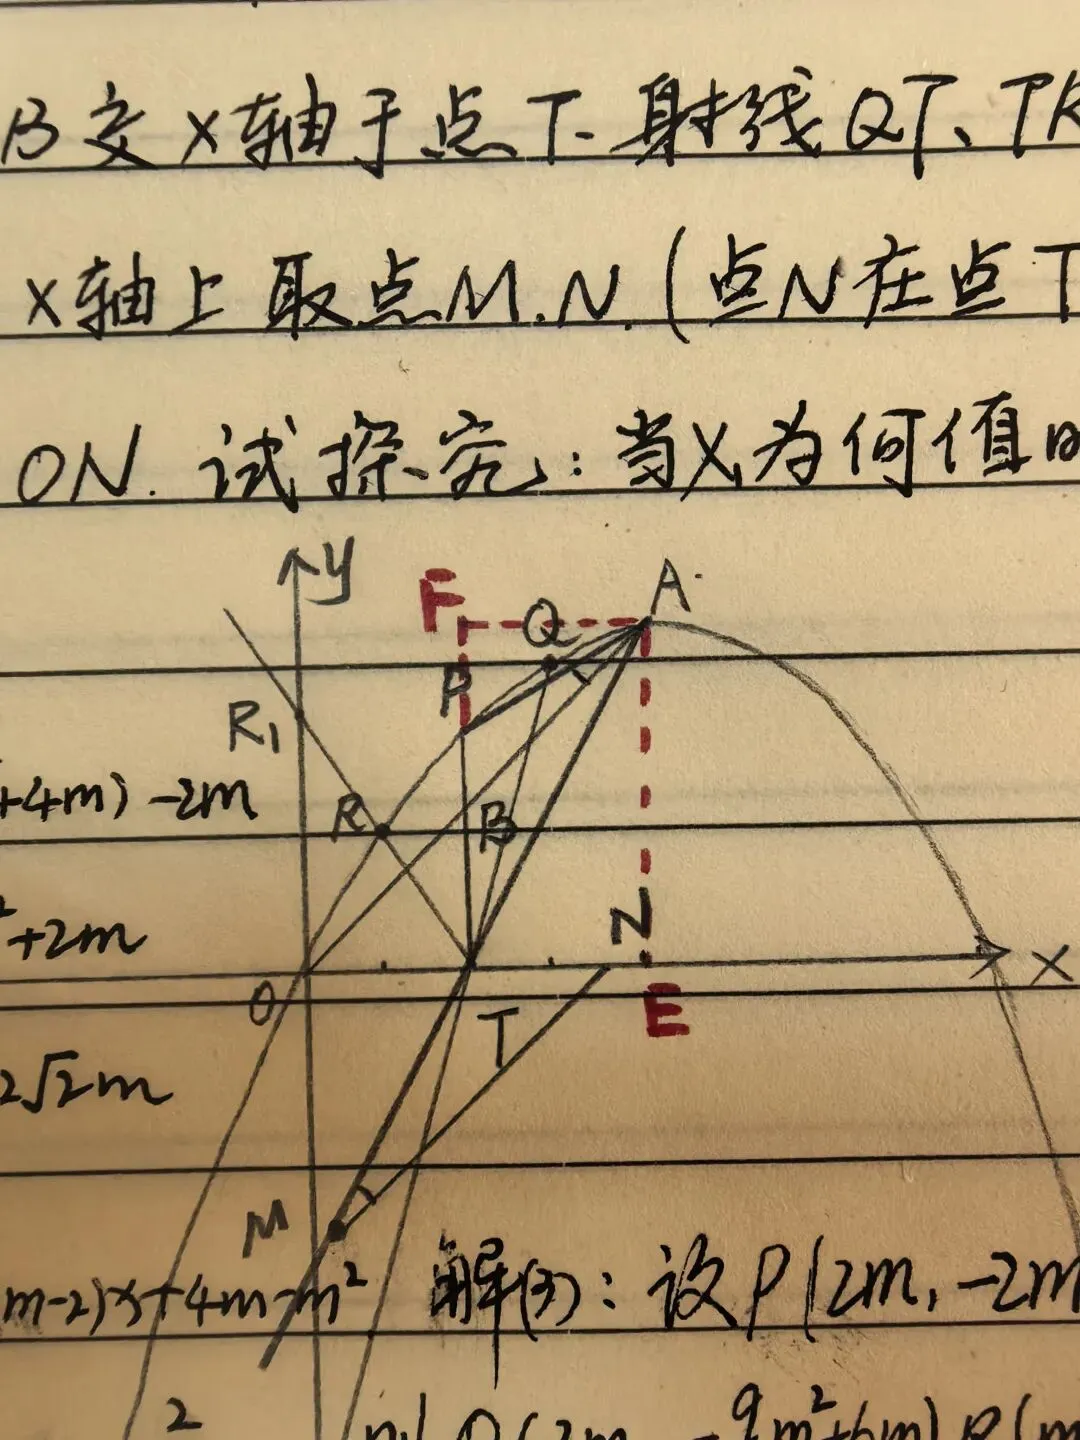 B交x轴于点T.射线QT、TR
x轴上取点M.N.(点N在点T
ON.试探究:当x为何值时
y
F
Q
A
P
R₁
+4m)-2m
R
B
²+2m
N
O
T
E
x
2√2m
M
m-2)x+4m-m² 解(3):设P(2m,-2m
2
-9/m²+6m) R(m